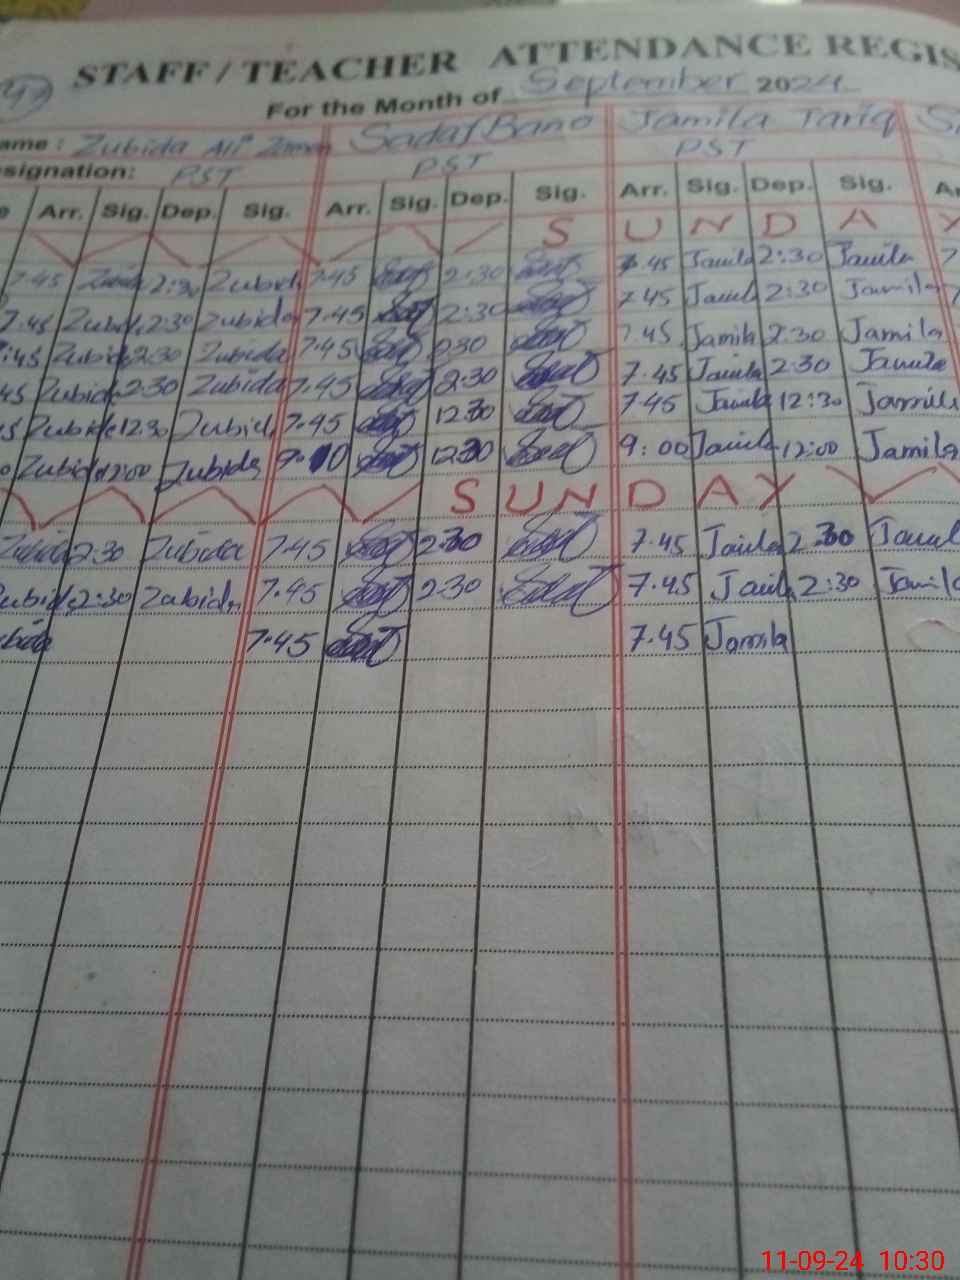 STAFF / TEACHER ATTENDANCE REGIS
For the Month of September 2024
ame : Zubida Ali Zaman Sadaf Bano Jamila Tariq
signation: PST PST PST
Arr. Sig. Dep. Sig. Arr. Sig. Dep. Sig. Arr. Sig. Dep. Sig.
S U N D A Y
7-45 2:30 Zubida 7-45 2:30 7.45 Jamila 2:30 Jamila 7
7.45 Zubida 2:30 Zubida 7-45 2:30 7.45 Jamila 2:30 Jamila
:45 Zubida 2:30 Zubida 7.45 2:30 7.45 Jamila 2:30 Jamila
45 Zubida 2:30 Zubida 7.45 2:30 7.45 Jamila 2:30 Jamila
Zubida 12:30 Zubida 7.45 12:30 7.45 Jamila 12:30 Jamila
Zubida 12:00 Zubida 9.10 9:00 Jamila 12:00 Jamila
S U N D A Y
Zubida 2:30 Zubida 7.45 2:30 7.45 Jamila 2 30 Jamil
ubida 2:30 Zubida 7.45 2.30 7.45 Jamila 2:30 Jamila
ubida 7.45 7.45 Jamila
11-09-24 10:30